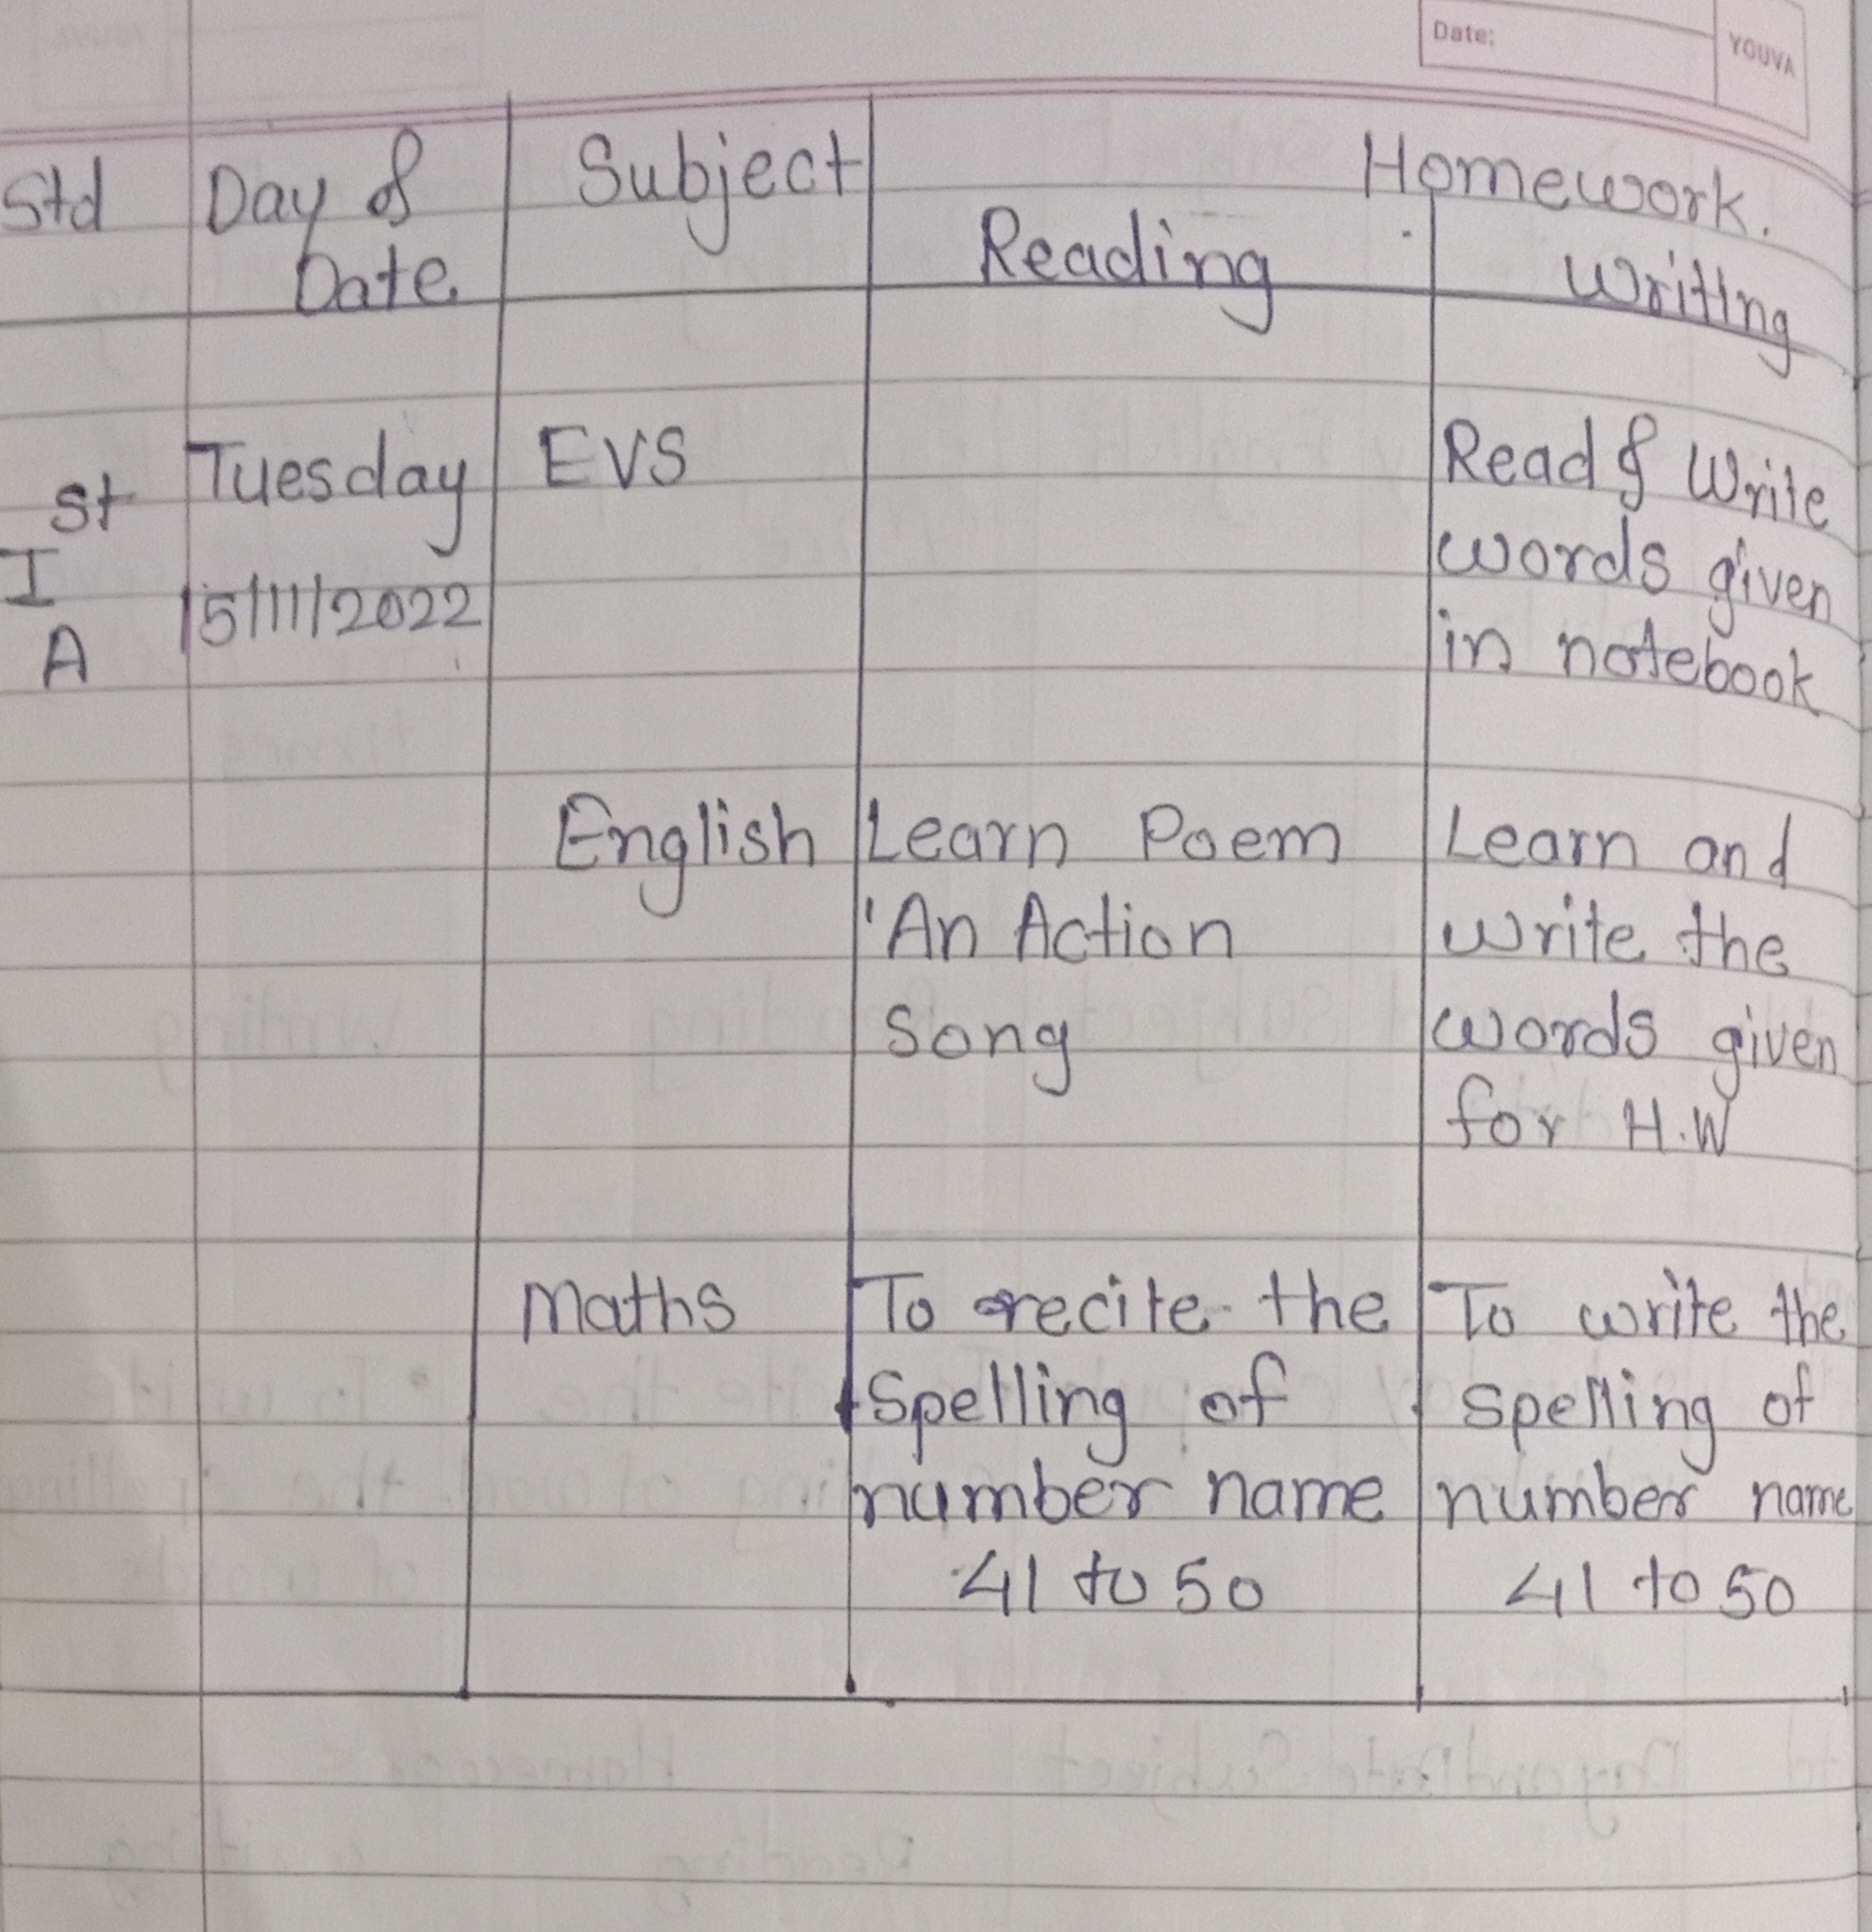 Date:
YOUVA
Std Day & Subject Homework.
Date Reading Writing
Tuesday EVS Read & Write
st words given
I 15/11/2022 in notebook
A
English Learn Poem Learn and
'An Action write the
Song words given
for H.W
Maths To recite the To write the
Spelling of spelling of
number name number name
41 to 50 41 to 50